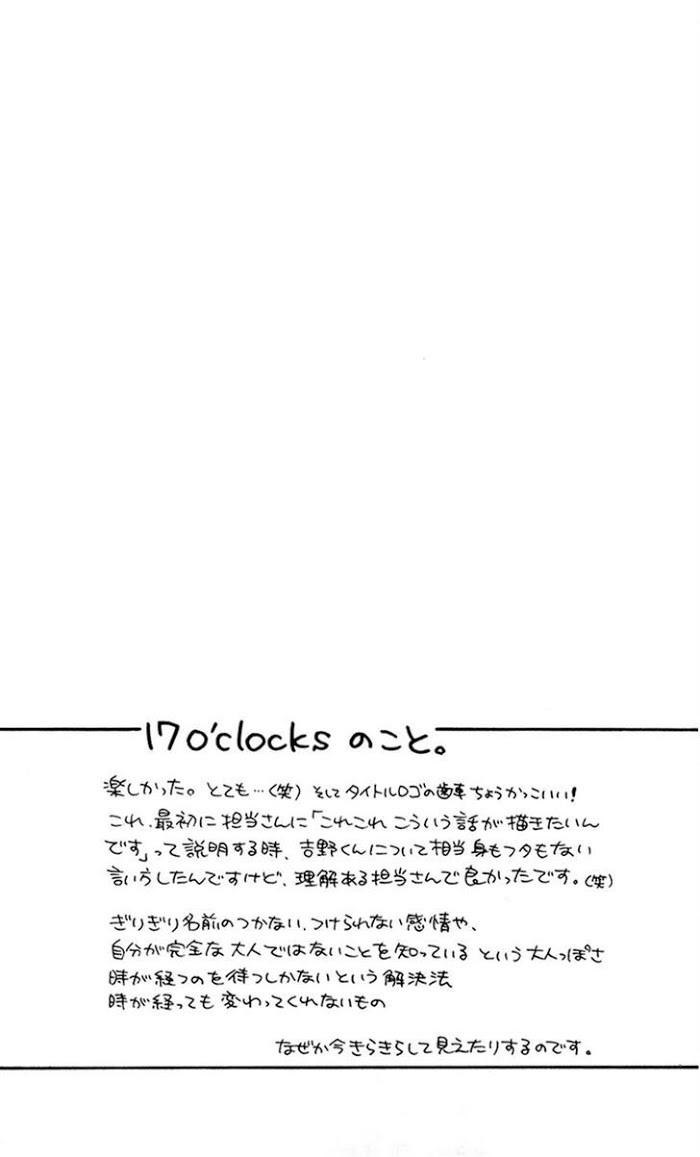 17 o'clocks のこと。
楽しかった。とても…(笑) そして タイトルロゴの歯車 ちょうかっこいい!
これ、最初に担当さんに「これこれ こういう話が描きたいん
です」って説明する時、吉野くんについて相当身もフタもない
言いうしたんですけど、理解ある担当さんで良かったです。(笑)
ぎりぎり名前のつかない、つけられない感情や、
自分が完全な大人ではないことを知っている という大人っぽさ
時が経つのを待つしかないという解決法
時が経っても変わってくれないもの
なぜか今きらきらして見えたりするのです。